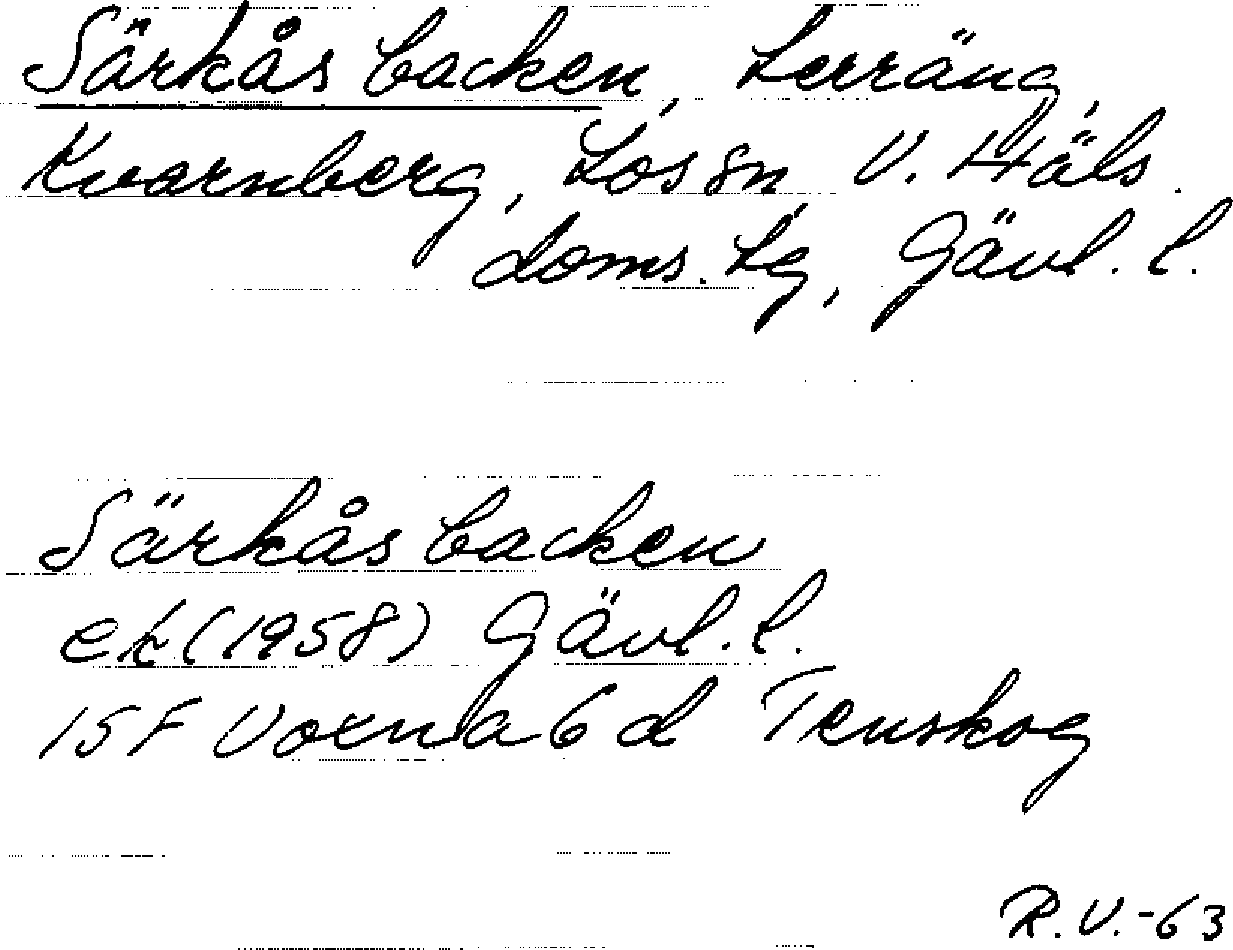 Särkåsbacken, terräng,
Kvarnberg, Los sn, V. Häls.
doms. tg, Gävl. l.
Särkåsbacken
ek (1958) Gävl. l.
15F Voxna 6 d Tenskog
R.V.-63